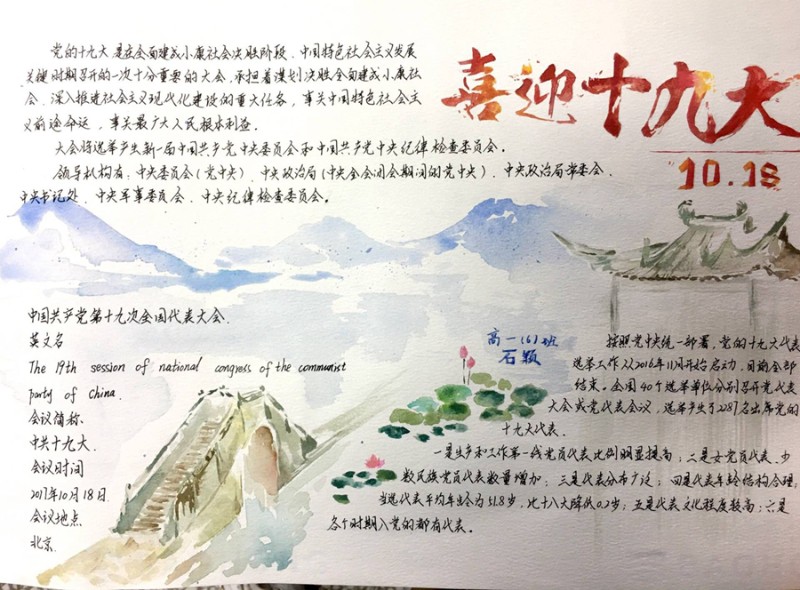 喜迎十九大
10.18
党的十九大是在全面建成小康社会决胜阶段、中国特色社会主义发展
关键时期召开的一次十分重要的大会,承担着谋划决胜全面建成小康社
会、深入推进社会主义现代化建设的重大任务,事关中国特色社会主
义前途命运,事关最广大人民根本利益。
大会将选举产生新一届中国共产党中央委员会和中国共产党中央纪律检查委员会。
领导机构有:中央委员会(党中央)、中央政治局(中央全会闭会期间的党中央)、中央政治局常委会、
中央书记处、中央军事委员会、中央纪律检查委员会。
中国共产党第十九次全国代表大会.
英文名
The 19th session of national congress of the communist
party of China.
会议简称.
中共十九大.
会议时间
2017年10月18日.
会议地点
北京.
高一(6)班
石颖
按照党中央统一部署,党的十九大代表
选举工作从2016年11月开始启动,目前全部
结束。全国40个选举单位分别召开党代表
大会或党代表会议,选举产生了2287名出席党的
十九大代表.
一是生产和工作第一线党员代表比例明显提高;二是女党员代表、少
数民族党员代表数量增加;三是代表分布广泛;四是代表年龄结构合理,
当选代表平均年龄为51.8岁,比十八大降低0.2岁;五是代表文化程度较高;六是
各个时期入党的都有代表。